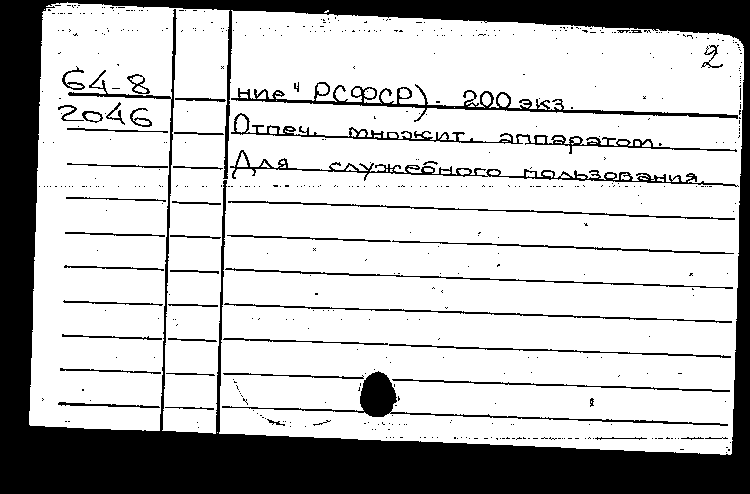 2
64-8
2046
ние" РСФСР). 200 экз.
Отпеч. множит. аппаратом.
Для служебного пользования.